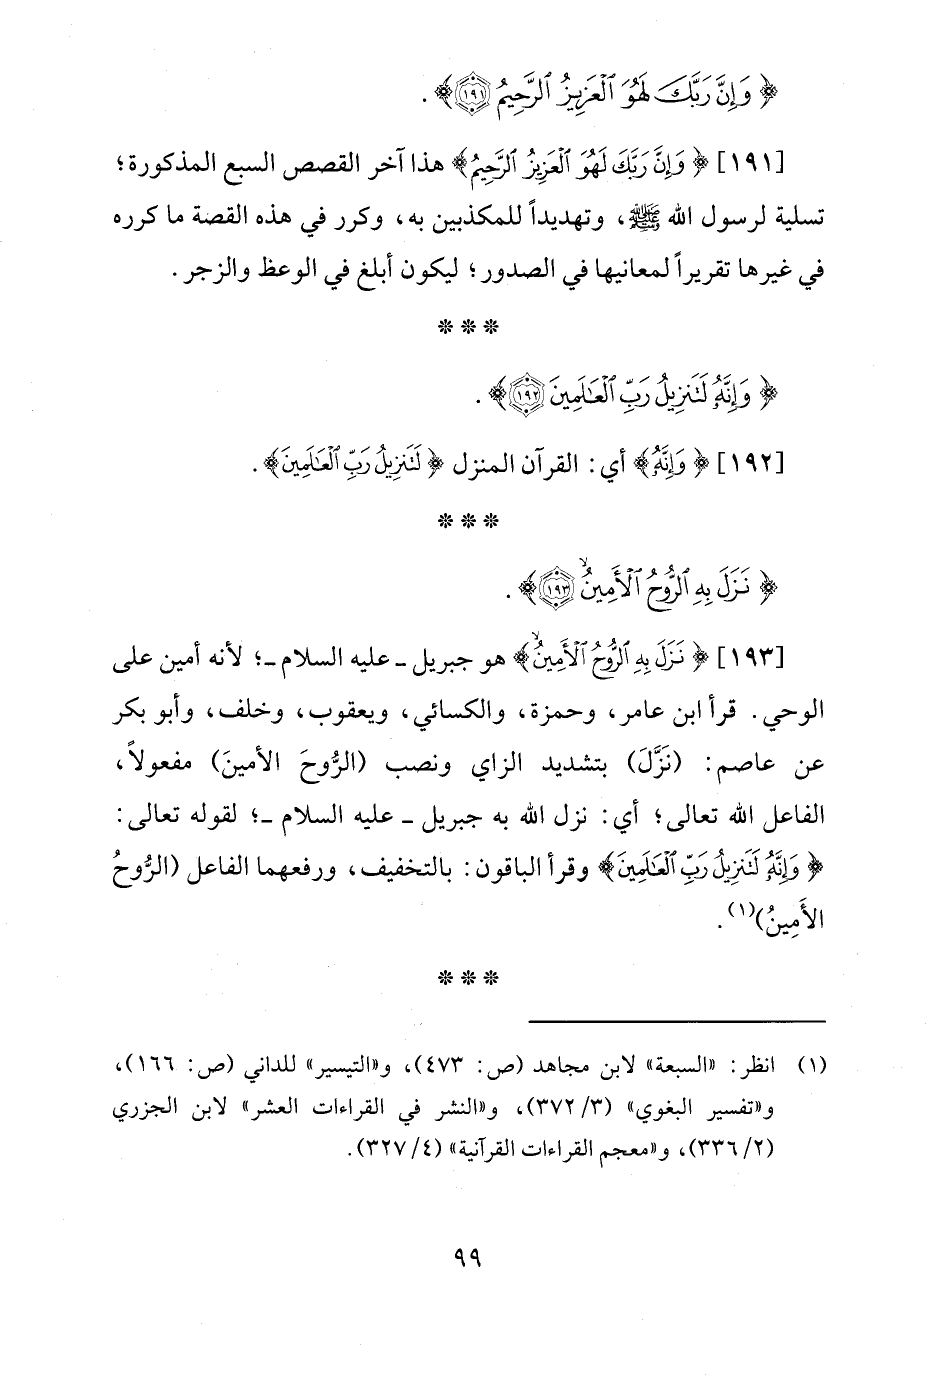 ﴿ وَإِنَّ رَبَّكَ لَهُوَ ٱلْعَزِيزُ ٱلرَّحِيمُ ١٩١ ﴾ .
[١٩١] ﴿ وَإِنَّ رَبَّكَ لَهُوَ ٱلْعَزِيزُ ٱلرَّحِيمُ ﴾ هذا آخر القصص السبع المذكورة؛
تسلية لرسول الله ﷺ، وتهديداً للمكذبين به، وكرر في هذه القصة ما كرره
في غيرها تقريراً لمعانيها في الصدور؛ ليكون أبلغ في الوعظ والزجر.
* * *
﴿ وَإِنَّهُۥ لَتَنزِيلُ رَبِّ ٱلْعَٰلَمِينَ ١٩٢ ﴾ .
[١٩٢] ﴿ وَإِنَّهُۥ ﴾ أي: القرآن المنزل ﴿ لَتَنزِيلُ رَبِّ ٱلْعَٰلَمِينَ ﴾ .
* * *
﴿ نَزَلَ بِهِ ٱلرُّوحُ ٱلْأَمِينُۙ ١٩٣ ﴾ .
[١٩٣] ﴿ نَزَلَ بِهِ ٱلرُّوحُ ٱلْأَمِينُۙ ﴾ هو جبريل ـ عليه السلام ـ؛ لأنه أمين على
الوحي. قرأ ابن عامر، وحمزة، والكسائي، ويعقوب، وخلف، وأبو بكر
عن عاصم: (نَزَّلَ) بتشديد الزاي ونصب (الرُّوحَ الأمينَ) مفعولاً،
الفاعل الله تعالى؛ أي: نزل الله به جبريل ـ عليه السلام ـ؛ لقوله تعالى:
﴿ وَإِنَّهُۥ لَتَنزِيلُ رَبِّ ٱلْعَٰلَمِينَ ﴾ وقرأ الباقون: بالتخفيف، ورفعهما الفاعل (الرُّوحُ
الأَمِينُ)(١).
* * *
(١) انظر: «السبعة» لابن مجاهد (ص: ٤٧٣)، و«التيسير» للداني (ص: ١٦٦)،
و«تفسير البغوي» (٣/ ٣٧٢)، و«النشر في القراءات العشر» لابن الجزري
(٢/ ٣٣٦)، و«معجم القراءات القرآنية» (٤/ ٣٢٧).
٩٩